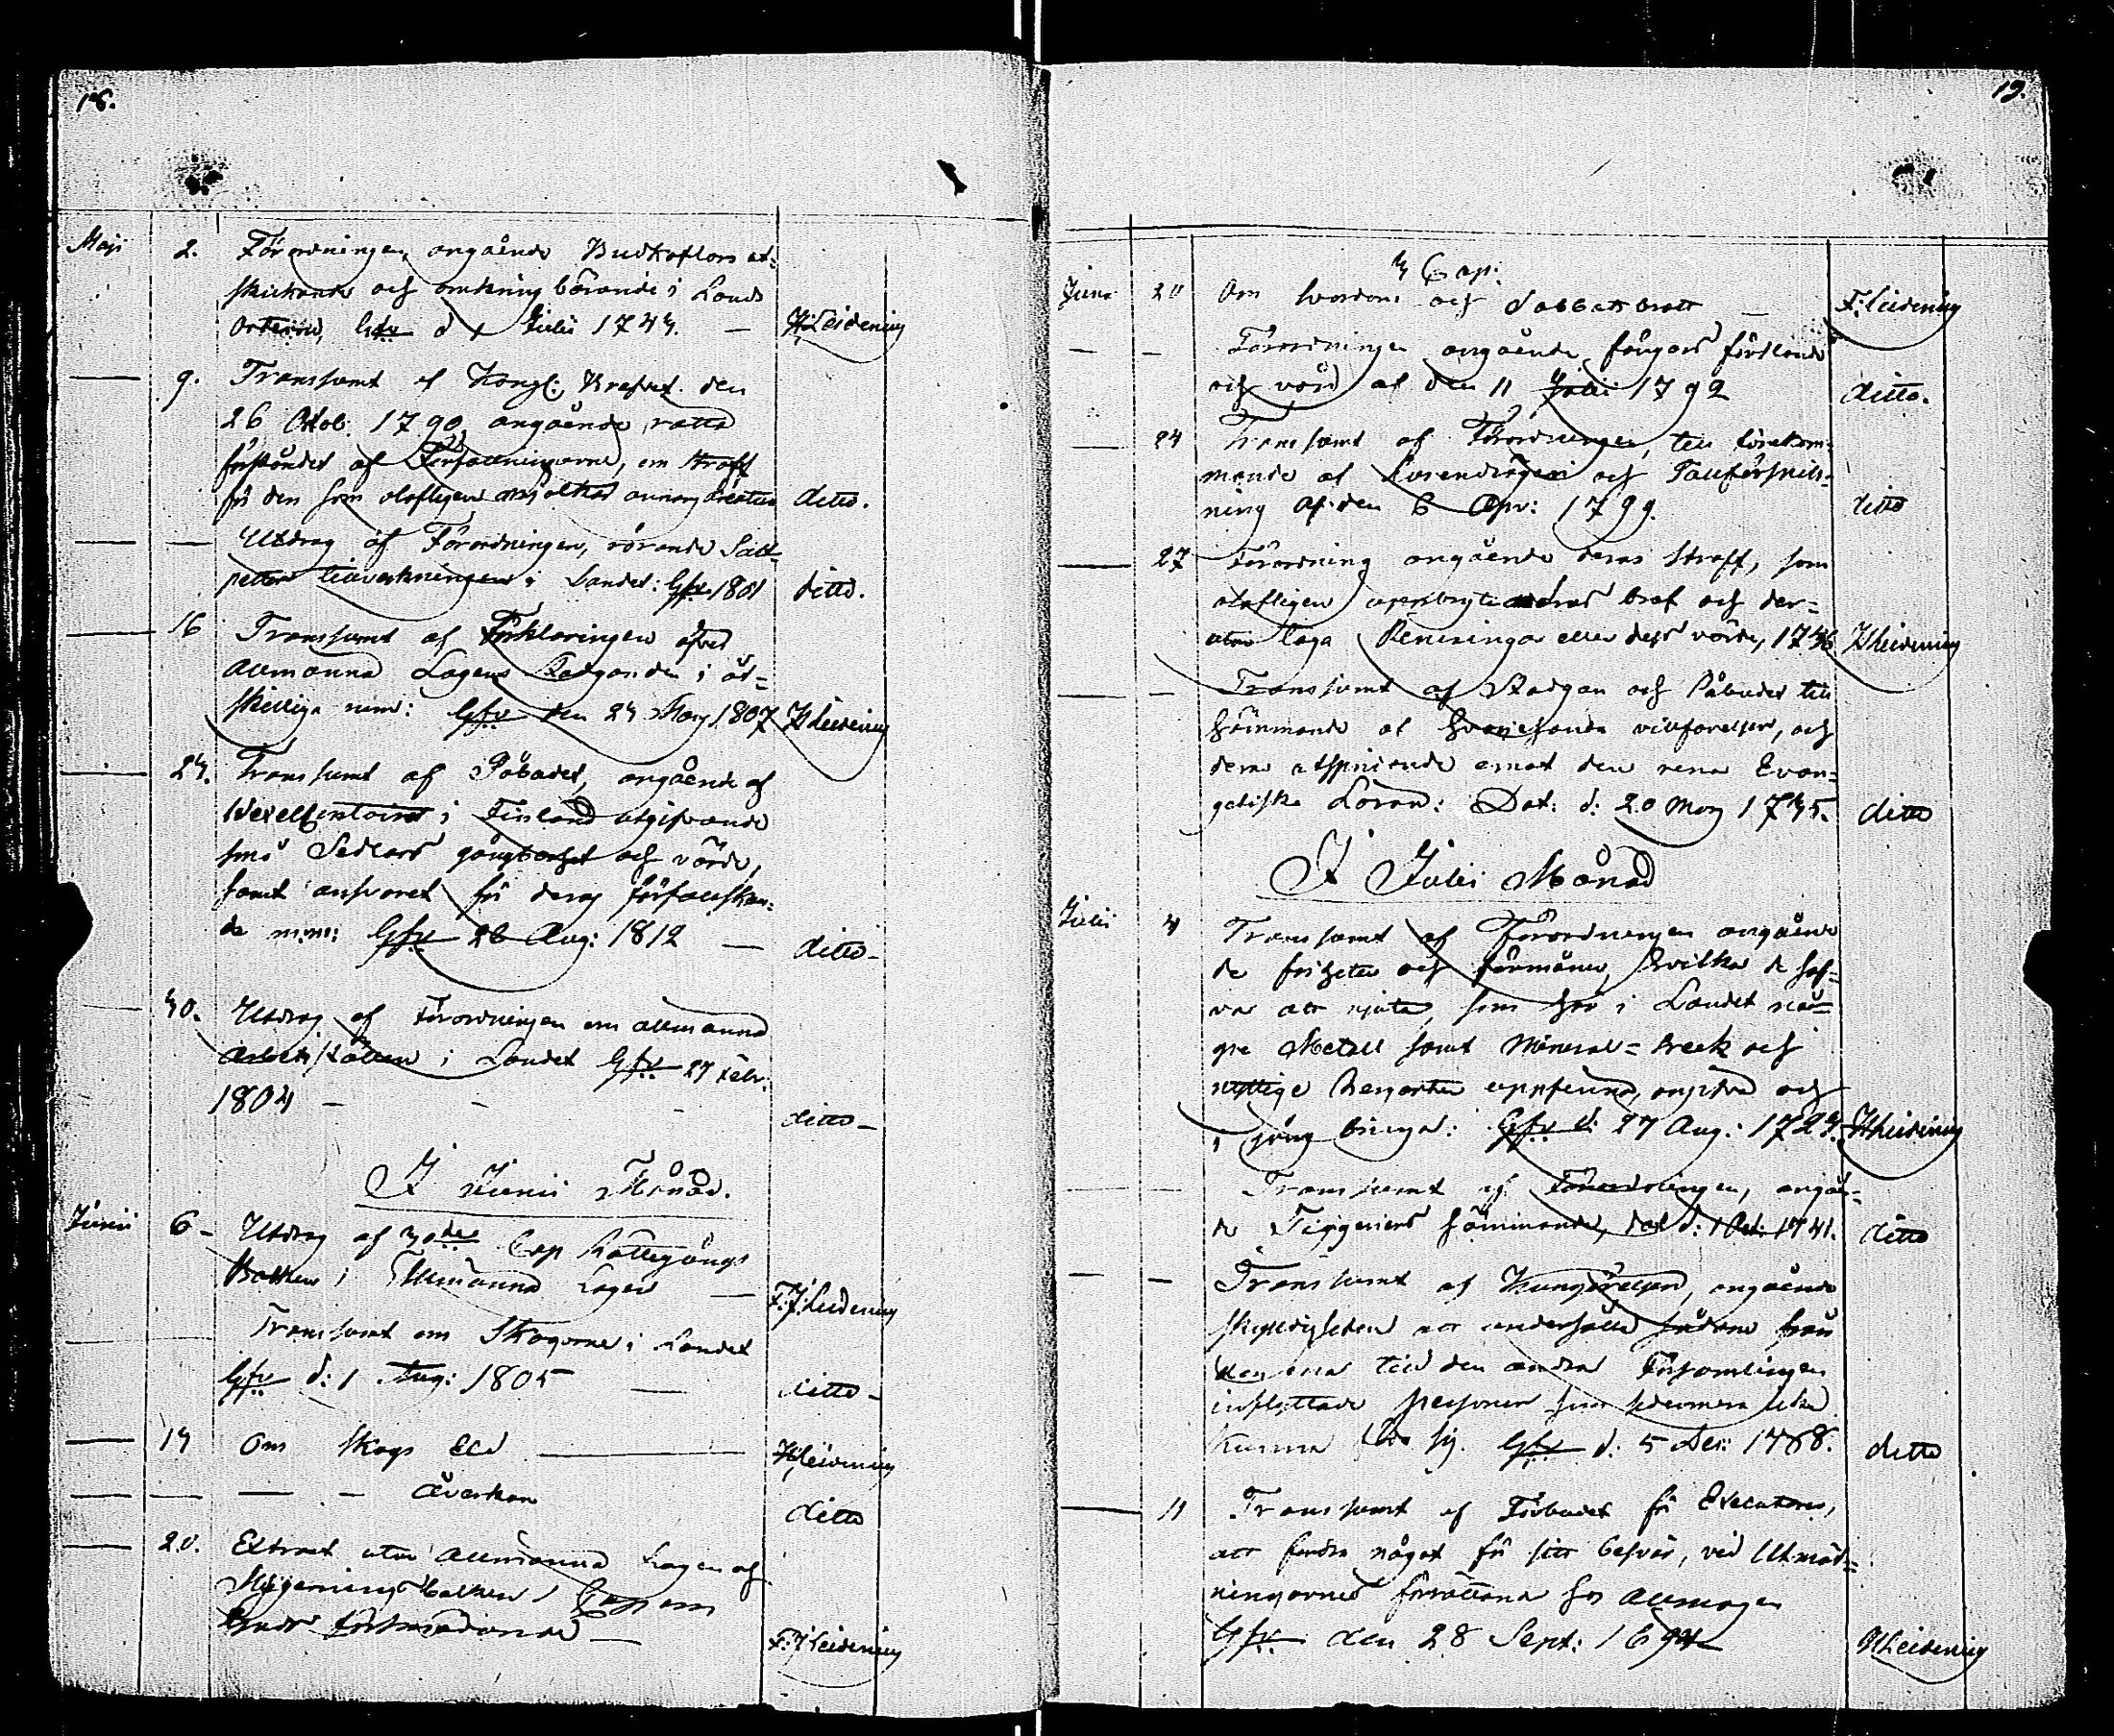 18.
Maji 2. Förordningen, angående Budkaflars ut-
skickande och omkring bärande i Lands
orterne, Gifv. d 4 Julii 1744. — H Leidenius
— 9. Transsumt af Kongl: Brefvet den
26 Octob: 1790, angående rätta
förståndet af Författningarne, om straff
för den som olofligen mjölkar annars kreatur ditto.
— — Utdrag af Förordningen, rörande Salt-
petter tillverkningen i Landet: Gifv. 1801 ditto.
— 16 Transsumt af Förklaringen öfver
Allmänna Lagens Stadgande i åt-
skilliga rum: Gifv den 24 Marj 1807 H Leidenius
— 24. Transsumt af Påbudet, angående af
Wexel Contoiret i Finland utgifvande
små Sedlars gångbarhet och värde,
samt ansvaret för deras förfalskan-
de m.m: Gifv 28 Aug: 1812 — ditto —
30. Utdrag af Förordningen om allmänna
Arbets ställen i Landet Gifv. 27 Febr:
1804 — — — ditto —
I Junii Månad.
Junii 6 — Utdrag af 30de Cap Rättegångs
Balken i Allmänna Lagen — F:J: Leidenius
— Transsumt om Skogarne i Landet
Gifv d: 1 Aug: 1805 — ditto —
— 14 Om Skogs Eld — H Leidenius
— — — — Åverkan ditto
— 20. Extract utur Allmänna Lagen af
Missgernings Balken 1 Cap om
Guds försmädande — F:J Leidenius
19.
3 Cap:
Junii 20 Om svordom och Sabbatsbrott — F: Leidenius
— — Förordningen angående, fångars förslande
och vård af den 11 Julii 1792 ditto.
— 24 Transsumt af Förordningen, till förekom-
mande af Lurendrägeri och Tullförsnill-
ning af den 6 Apr: 1799. ditto
— 27 Förordning angående deras straff, som
olofligen uppbryta andras bref och der-
utur taga Penningar eller dess värde, 1736 H Leidenius
— — Transsumt af Stadgan och Påbudet till
hämmande af hvarjehanda villfarelser, och
deras utspridande emot den rena Evan-
geliska Läran: Dat: d: 20 Marj 1735. ditto
I Julii Månad
Julii 4 Transsumt af Förordningen angående
de friheter och förmåner, hvilka de haf-
va att njuta, som här i Landet nå-
gre Metall samt Mineral-Streck och
nyttige Bergarter uppfinna, angifva och
i gång bringa: Gifv d: 27 Aug: 1723. H Leidenius
— — Transsumt af Förordningen, angåen-
de Tiggeriers hämmande, dat d: 1 Oct: 1741. ditto
— — Transsumt af Kungörelsen, angående
skyldigheten att underhålla sådane från
den ena till den andra Församlingen
inflyttade personer som sedermera icke
kunna föda sig. Gifv d: 5 Dec: 1788. ditto
— 11 Transsumt af Förbudet för Executores,
att fordra något för sitt besvär, vid Utmät-
ningarnes förrättande hos Allmogen
Gifv. den 28 Sept: 1694 H Leidenius